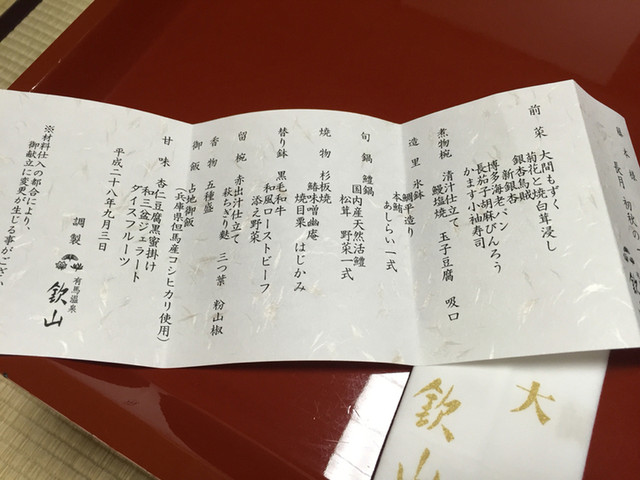 長月 初秋の
欽山
前菜 大間もずく
菊花と焼白茸浸し
銀杏烏賊
新銀杏
博多海老パン
長茄子胡麻びんろう
かます小袖寿司
煮物椀 清汁仕立て
鰻塩焼 玉子豆腐 吸口
造里 氷鉢
鯛平造り
本鮪
あしらい一式
旬鍋 鱧鍋
国内産天然活鱧
松茸 野菜一式
焼物 杉板焼
鰆味噌幽庵
焼目栗 はじかみ
替り鉢 黒毛和牛
和風ローストビーフ
添え野菜
留椀 赤出汁仕立て
萩ちぎり麩 三つ葉 粉山椒
香物 五種盛
御飯 占地御飯
(兵庫県但馬産コシヒカリ使用)
甘味 杏仁豆腐黒蜜掛け
和三盆ジェラート
ダイスフルーツ
平成二十八年九月三日
調製 有馬温泉 欽山
※材料仕入の都合により、
御献立に変更が生じる事がござい
大
欽山